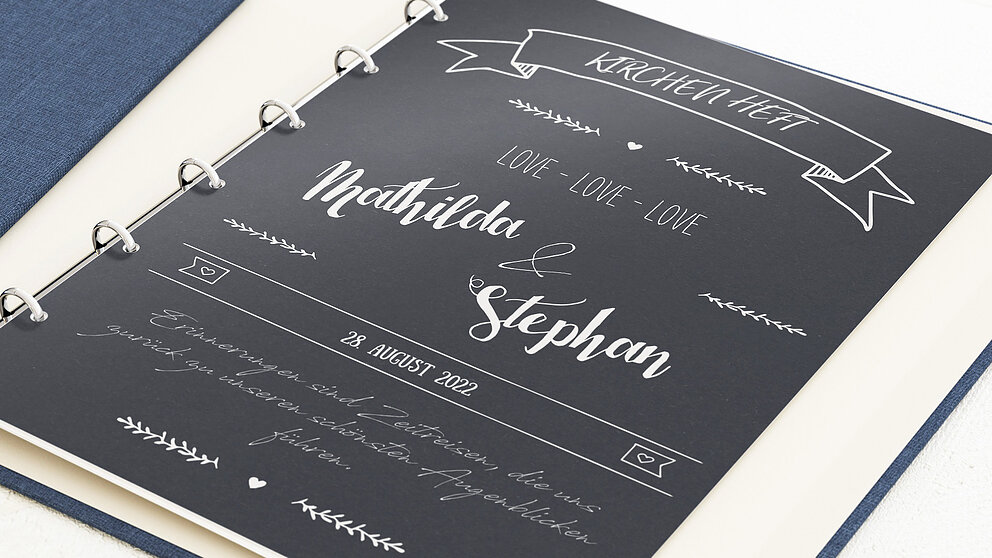 KIRCHEN HEFT
LOVE - LOVE - LOVE
Mathilda
&
Stephan
28. AUGUST 2022
Erinnerungen sind Zeitreisen, die uns
zurück zu unseren schönsten Augenblicken
führen.